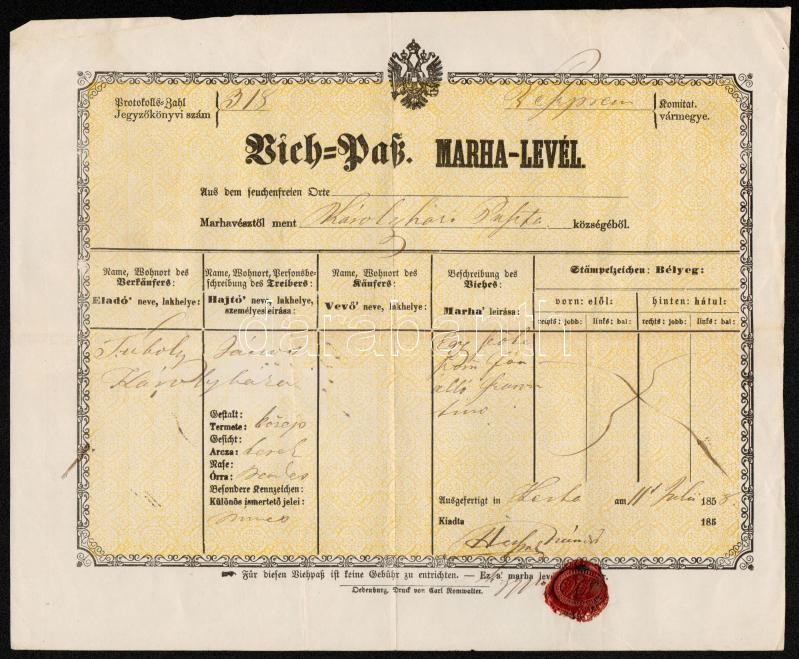 Protokolls-Zahl
Jegyzőkönyvi szám
318
Komitat.
vármegye.
Vieh=Paß. MARHA-LEVÉL.
Aus dem seuchenfreien Orte
Marhavésztől ment Károlyháza Puszta községéből.
Name, Wohnort des
Verkäufers:
Eladó' neve, lakhelye:
Name, Wohnort, Personsbe-
schreibung des Treibers:
Hajtó' neve, lakhelye,
személyes leirása:
Name, Wohnort des
Käufers:
Vevő' neve, lakhelye:
Beschreibung des
Viehes:
Marha' leírása:
Stämpelzeichen: Bélyeg:
vorn: elől:
hinten: hátul:
rechts: jobb:
links: bal:
rechts: jobb:
links: bal:
János
Károlyháza
Egy
álló
Gestalt:
Termete:
Gesicht:
Arcza:
Nase:
Orra: rendes
Besondere Kennzeichen:
Különös ismertető jelei:
nincs
Ausgefertigt in am 11 Juli 1858.
Kiadta 185
darabanth
Für diesen Viehpaß ist keine Gebühr zu entrichten. — Ez a' marha
Oedenburg. Druck von Carl Romwalter.